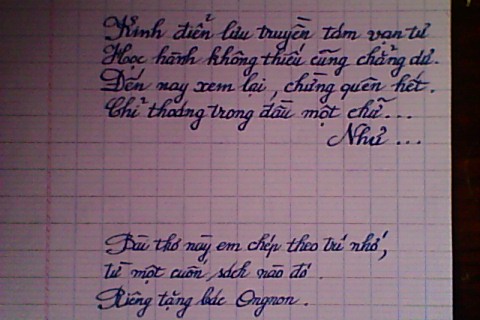 Kinh điển lưu truyền tám vạn tư
Học hành không thiếu cũng chẳng dư.
Đến nay xem lại, chừng quên hết.
Chỉ thoáng trong đầu một chữ...
Như ...
Bài thơ này em chép theo trí nhớ,
từ một cuốn sách nào đó.
Riêng tặng bác Ongnon.